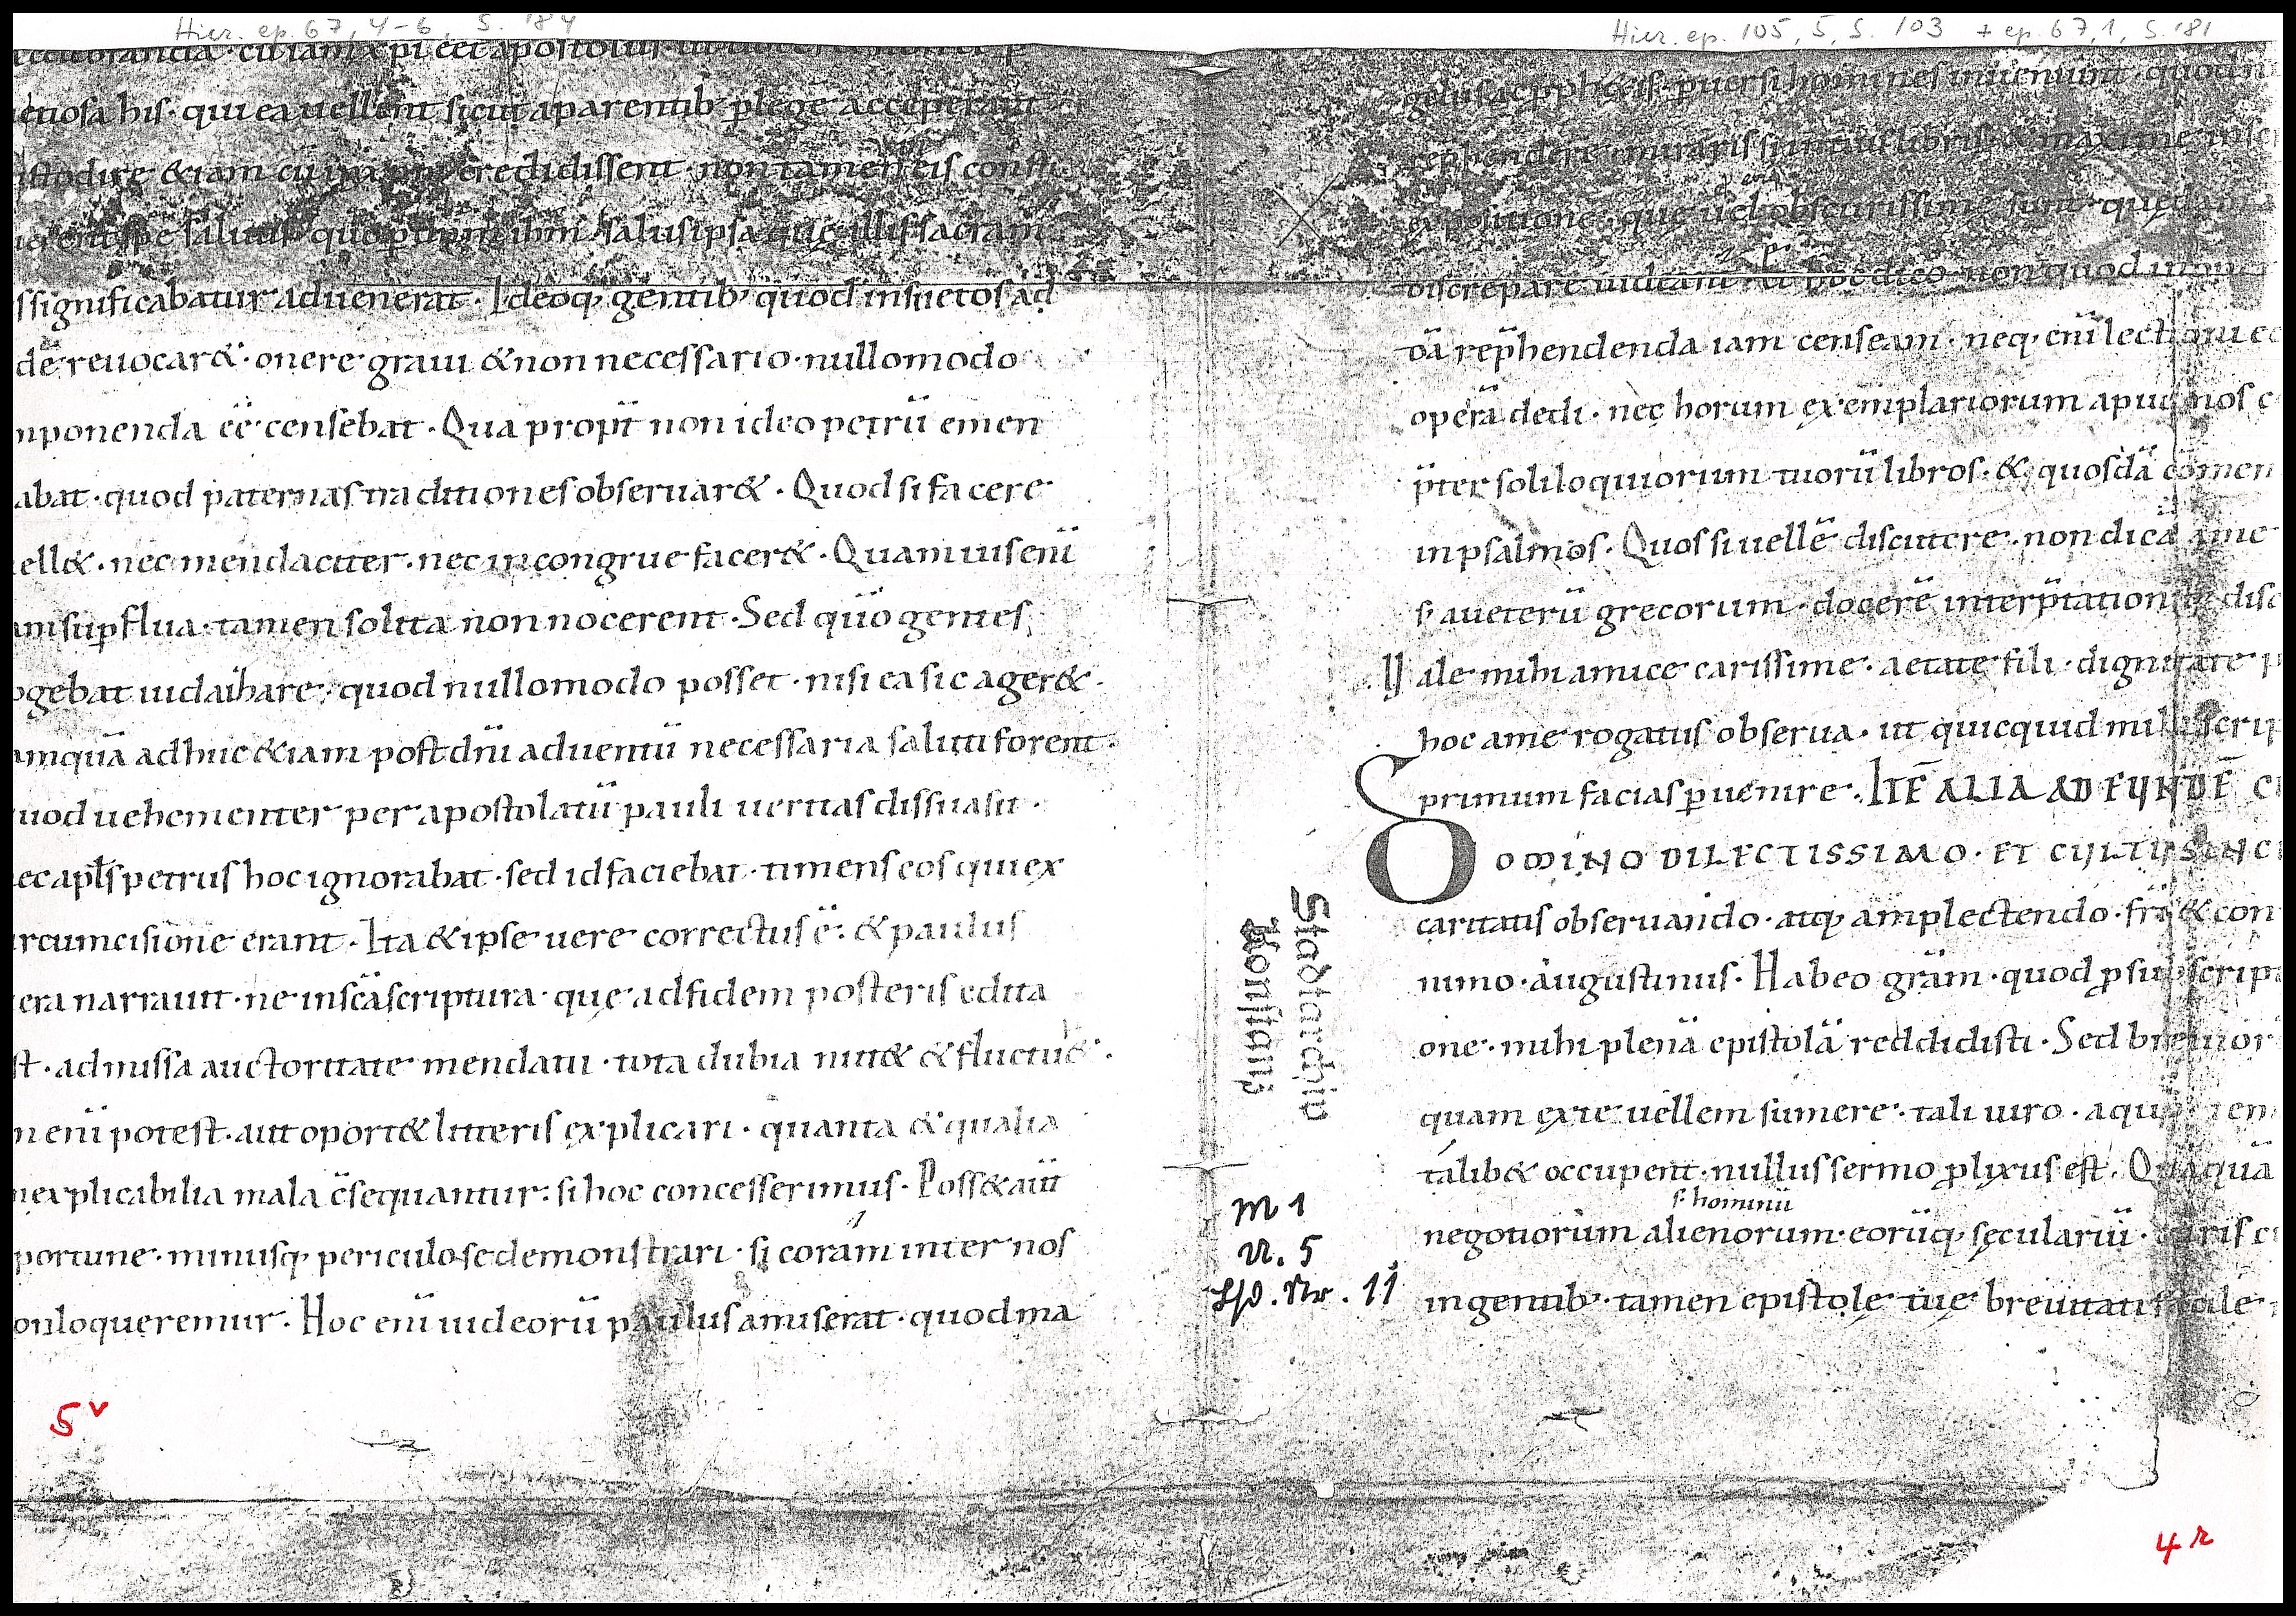 Hier. ep. 67, 4-6, S. 184
cū iam xpi eēt apostolus
etiosa his · qui ea uellent sicut a parentib· p lege acceperant
istodire &iam cū in xpm credidissent · non tamen eis consti
salus ipsa que illis sacram
ssignificabatur aduenerat · Ideoq; gentib; quod insuetos ad
de reuocar& · onere graui & non necessario · nullomodo
nponenda eē censebat · Qua propt̄ non ideo petrū emen
abat · quod paternas traditiones obseruar& · Quod si facere
ell& · nec mendaciter · nec incongrue facer& · Quamuis enī
am supflua · tamen solita non nocerent · Sed qūo gentes
ogebat iudaizare · quod nullomodo posset · nisi ea sic ager& ·
amquā adhuc &iam post dnī aduentū necessaria saluti forent ·
uod uehementer per apostolatū pauli ueritas dissuasit ·
ec apls petrus hoc ignorabat · sed id faciebat · timens eos qui ex
rcumcisione erant · Ita & ipse uere correctus ē · & paulus
era narrauit · ne in scā scriptura · quę ad fidem posteris edita
st · admissa auctoritate mendatii · tota dubia nut& & fluctu& ·
n enī potest · aut oport& litteris explicari · quanta & qualia
nexplicabilia mala c̄sequantur : si hoc concesserimus · Poss& autē
portune · minusq; periculose demonstrari · si coram inter nos
onloqueremur · Hoc enī iudeorū paulus amiserat · quod ma
5v
Stadtarchiv
Konstanz
M 1
U. 5
Lfd. Nr. 11
Hier. ep. 105, 5, S. 103 + ep. 67,1, S. 181
puersi homines inueniunt · quod n
rephendere · miraris si in tuis libris & maxime in sc
expositione · quę uel obscurissimę sunt quedam a
discrepare uideant · Et hoc dico non quod in tuis
dā rep̄hendenda iam censeam · neq; enī lectioni eo
operā dedi · nec horum exemplariorum apud nos c
p̄ter soliloquiorum tuorū libros · & quosdā comen
in psalmos · Quos si uellē discutere · non dicā a me
s; a ueterū grecorum · docerē interp̄tationib; disc
Vale mihi amice carissime · aetate fili · dignitate p
hoc a me rogatus obserua · ut quicquid mihi scrip
primum facias p uenire · ITĒ ALIA AD EUNDĒ C
DOMINO DILECTISSIMO · ET CULTU SINC
caritatis obseruando · atq; amplectendo · fri & con
nimo · augustinus · Habeo grām · quod p subscript
one · mihi plenā epistolā reddidisti · Sed breuior
quam ex te uellem sumere · tali uiro · a quo
talib& occupent · nullus sermo plixus est · Quāquā
s· hominū
negotiorum alienorum · eorūq; sęculariū · curis c
ingentib; · tamen epistolę tuę breuitati facile
4r